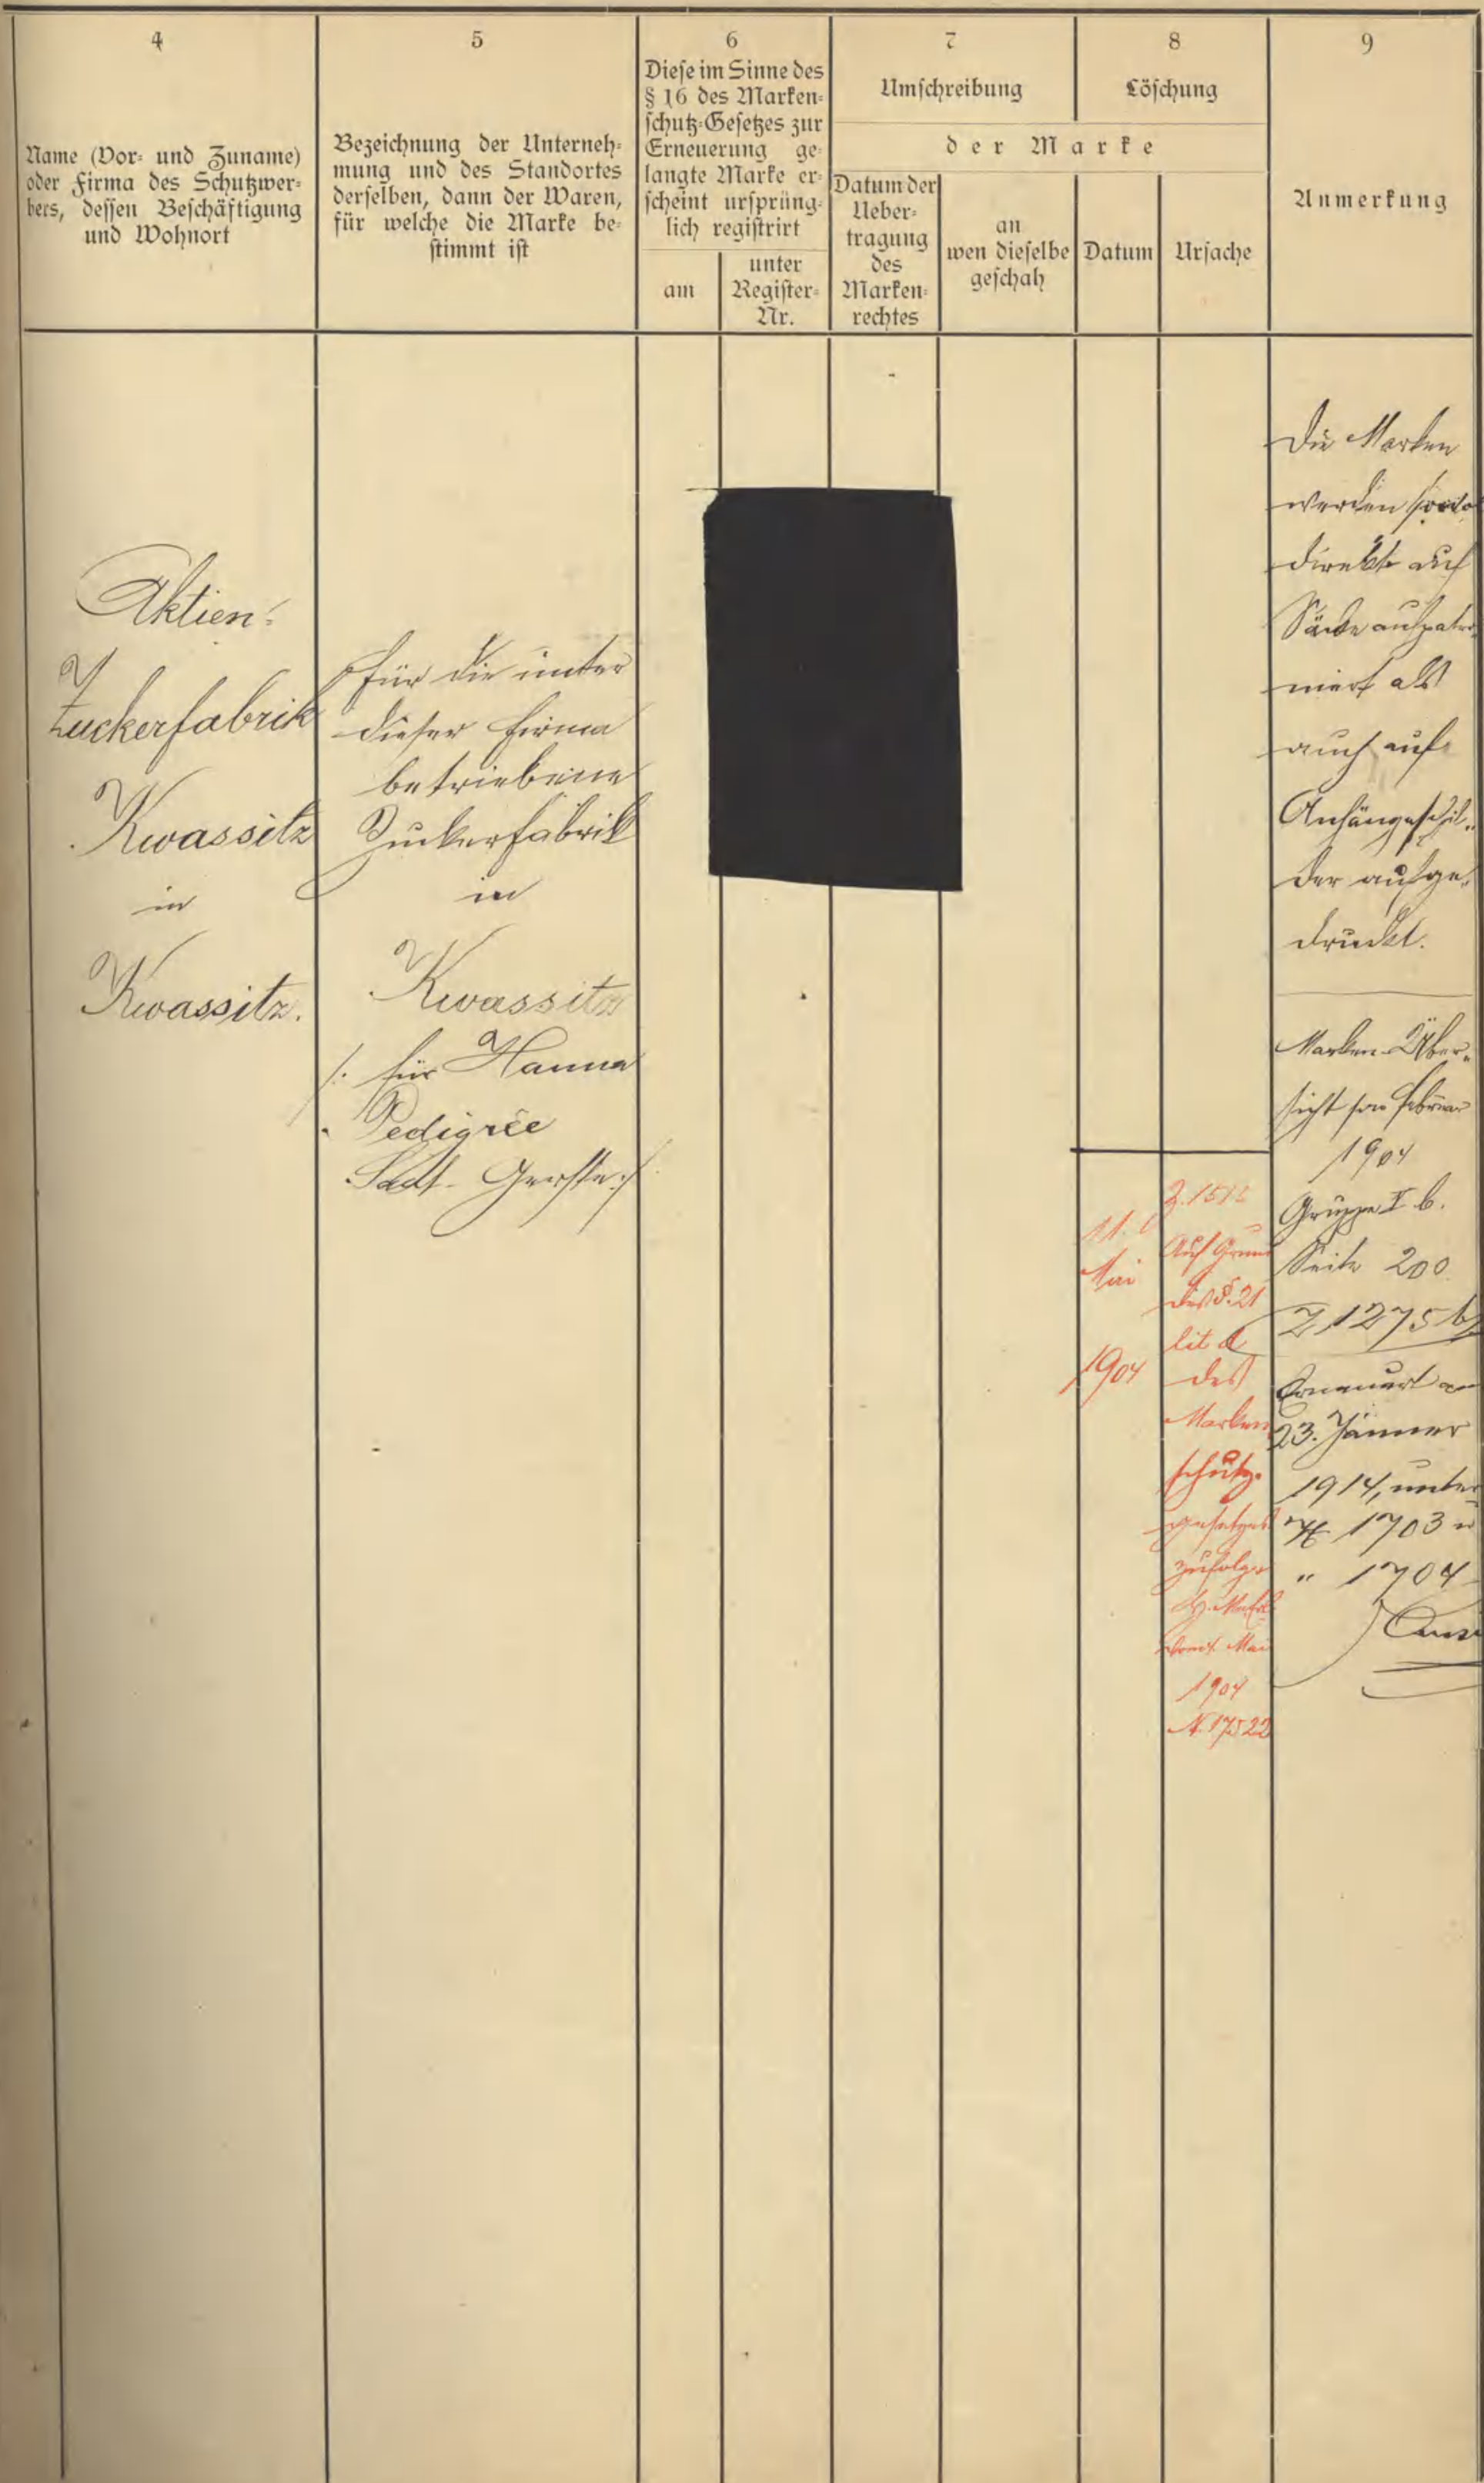 4
Name (Vor- und Zuname)
oder Firma des Schutzwer-
bers, dessen Beschäftigung
und Wohnort
5
Bezeichnung der Unterneh-
mung und des Standortes
derselben, dann der Waren,
für welche die Marke be-
stimmt ist
6
Diese im Sinne des
§ 16 des Marken-
schutz-Gesetzes zur
Erneuerung ge-
langte Marke er-
scheint ursprüng-
lich registrirt
am
unter
Register-
Nr.
7
Umschreibung
8
Löschung
der Marke
Datum der
Ueber-
tragung
des
Marken-
rechtes
an
wen dieselbe
geschah
Datum
Ursache
9
Anmerkung
Aktien-
Zuckerfabrik
Kwassitz
in
Kwassitz.
für die unter
dieser Firma
betriebene
Zuckerfabrik
in
Kwassitz
/: für Hanna
Pedigrée
Saat-Gerste :/
11.
Mai
1904
Auf Grund
des §. 21
lit d
des
Marken
schutz-
gesetzes
zufolge
Mai
1904
N. 17522
Die Marken
werden
direkt auf
Säcke aufpatro-
niert als
auch auf
Anhängeschil-
der aufge-
druckt.
Marken-Über-
sicht Februar
1904
Gruppe I b.
Seite 200
Z 1275
Erneuert am
23. Jänner
1914, unter
1703 u
" 1704